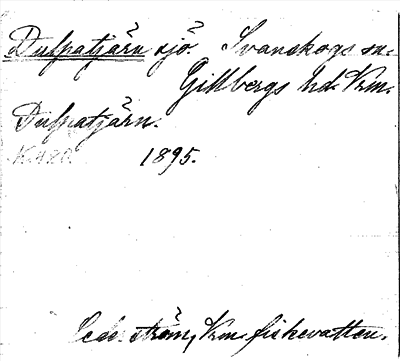 Dulpatjärn sjö Svanskogs sn.
Gillbergs hd. Vrm.
Dulpatjärn.
1895.
Cederström, Vrm. fiskevatten.